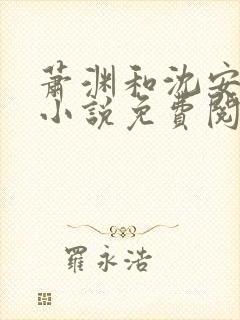 萧渊和沈安
小说免費閱
羅永浩